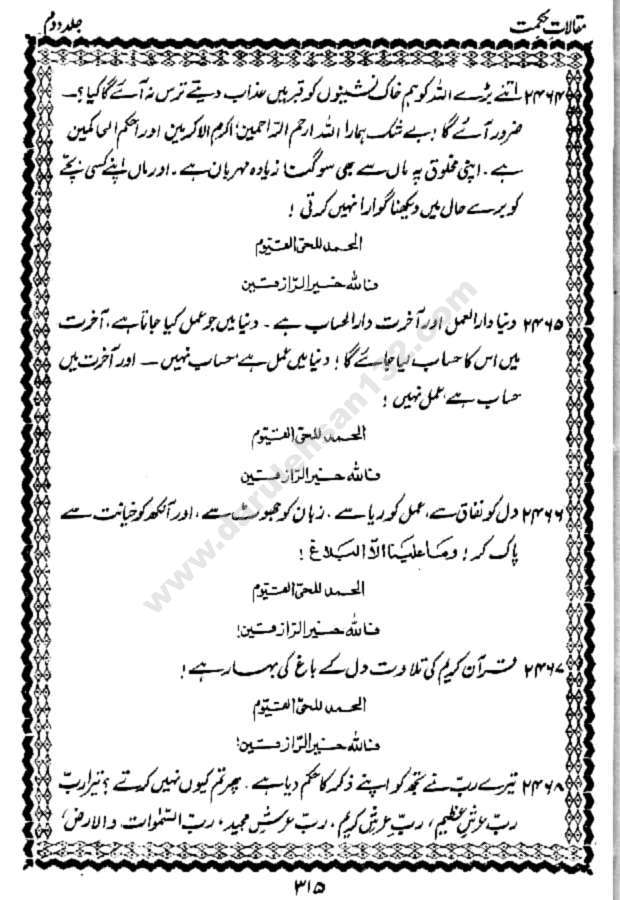 مقالاتِ حکمت
جلد دوم
۲۴۶۴ اتنے بڑے اللہ کو ہم خاک نشینوں کو قبر میں عذاب دیتے ترس نہ آئے گا کیا؟ —
ضرور آئے گا ، بے شک ہمارا اللہ ارحم الراحمین، اکرم الاکرمین اور احکم الحاکمین
ہے ۔ اپنی مخلوق پہ ماں سے بھی سو گنا زیادہ مہربان ہے ۔ اور ماں اپنے کسی بچے
کو برے حال میں دیکھنا گوارا نہیں کرتی !
الحمد للحیّ القیّوم
فاللہ خیر الرّازقین
۲۴۶۵ دنیا دار العمل اور آخرت دار الحساب ہے ۔ دنیا میں جو عمل کیا جاتا ہے، آخرت
میں اس کا حساب لیا جائے گا ! دنیا میں عمل ہے حساب نہیں — اور آخرت میں
حساب ہے، عمل نہیں !
الحمد للحیّ القیّوم
فاللہ خیر الرّازقین
۲۴۶۶ دل کو نفاق سے، عمل کو ریا سے ، زبان کو جھوٹ سے ، اور آنکھ کو خیانت سے
پاک کر ! وما علینا الّا البلاغ !
الحمد للحیّ القیّوم
فاللہ خیر الرّازقین!
۲۴۶۷ قرآن کریم کی تلاوت دل کے باغ کی بہار ہے !
الحمد للحیّ القیّوم
فاللہ خیر الرّازقین!
۲۴۶۸ تیرے ربّ نے تجھ کو اپنے ذکر کا حکم دیا ہے ۔ پھر تم کیوں نہیں کرتے ؟ تیرا ربّ
ربّ عرشِ عظیم، ربّ عرشِ کریم، ربّ عرشِ مجید، ربّ السّمٰوات والارض،
۳۱۵
www.darulehsan132.com